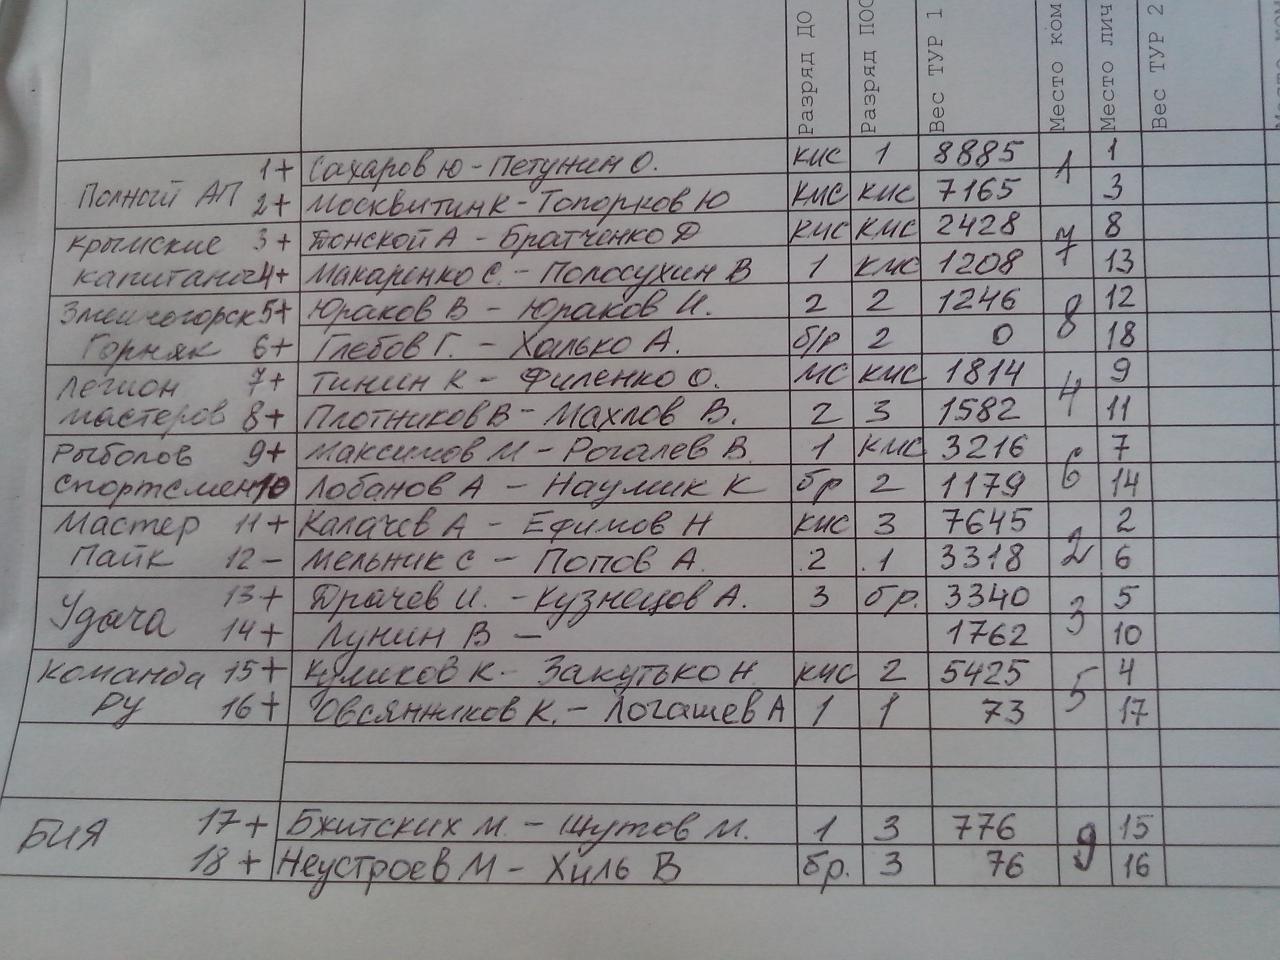 Разряд ДО Разряд ПОС Вес ТУР 1 Место ком Место лич Вес ТУР 2
Полный АП
1+ Сахаров Ю - Петунин О. кмс 1 8885 1 1
2+ Москвитин К - Топорков Ю кмс кмс 7165 3
Крымские 3+ Донской А - Братченко Д кмс кмс 2428 7 8
капитаны 4+ Макаренко С. - Полосухин В 1 кмс 1208 13
Змеиногорск 5+ Юраков В - Юраков И. 2 2 1246 8 12
Горняк 6+ Глебов Г. - Халько А. б/р 2 0 18
Легион 7+ Тинин К - Филенко О. мс кмс 1814 4 9
мастеров 8+ Плотников В - Махлов В. 2 3 1582 11
Рыболов 9+ Максимов М - Рогалев В. 1 кмс 3216 6 7
спортсмен 10 Лобанов А - Наумик К бр 2 1179 14
Мастер 11+ Калачев А - Ефимов Н кмс 3 7645 2 2
Пайк 12- Мельник С - Попов А. 2 1 3318 6
Удача
13+ Драчев И. - Кузнецов А. 3 бр. 3340 3 5
14+ Лунин В - 1762 10
Команда 15+ Куликов К. - Закутько Н. кмс 2 5425 5 4
РУ 16+ Овсянников К. - Логашев А 1 1 73 17
БИЯ
17+ Бхитских М. - Шутов М. 1 3 776 9 15
18+ Неустроев М - Хиль В бр. 3 76 16